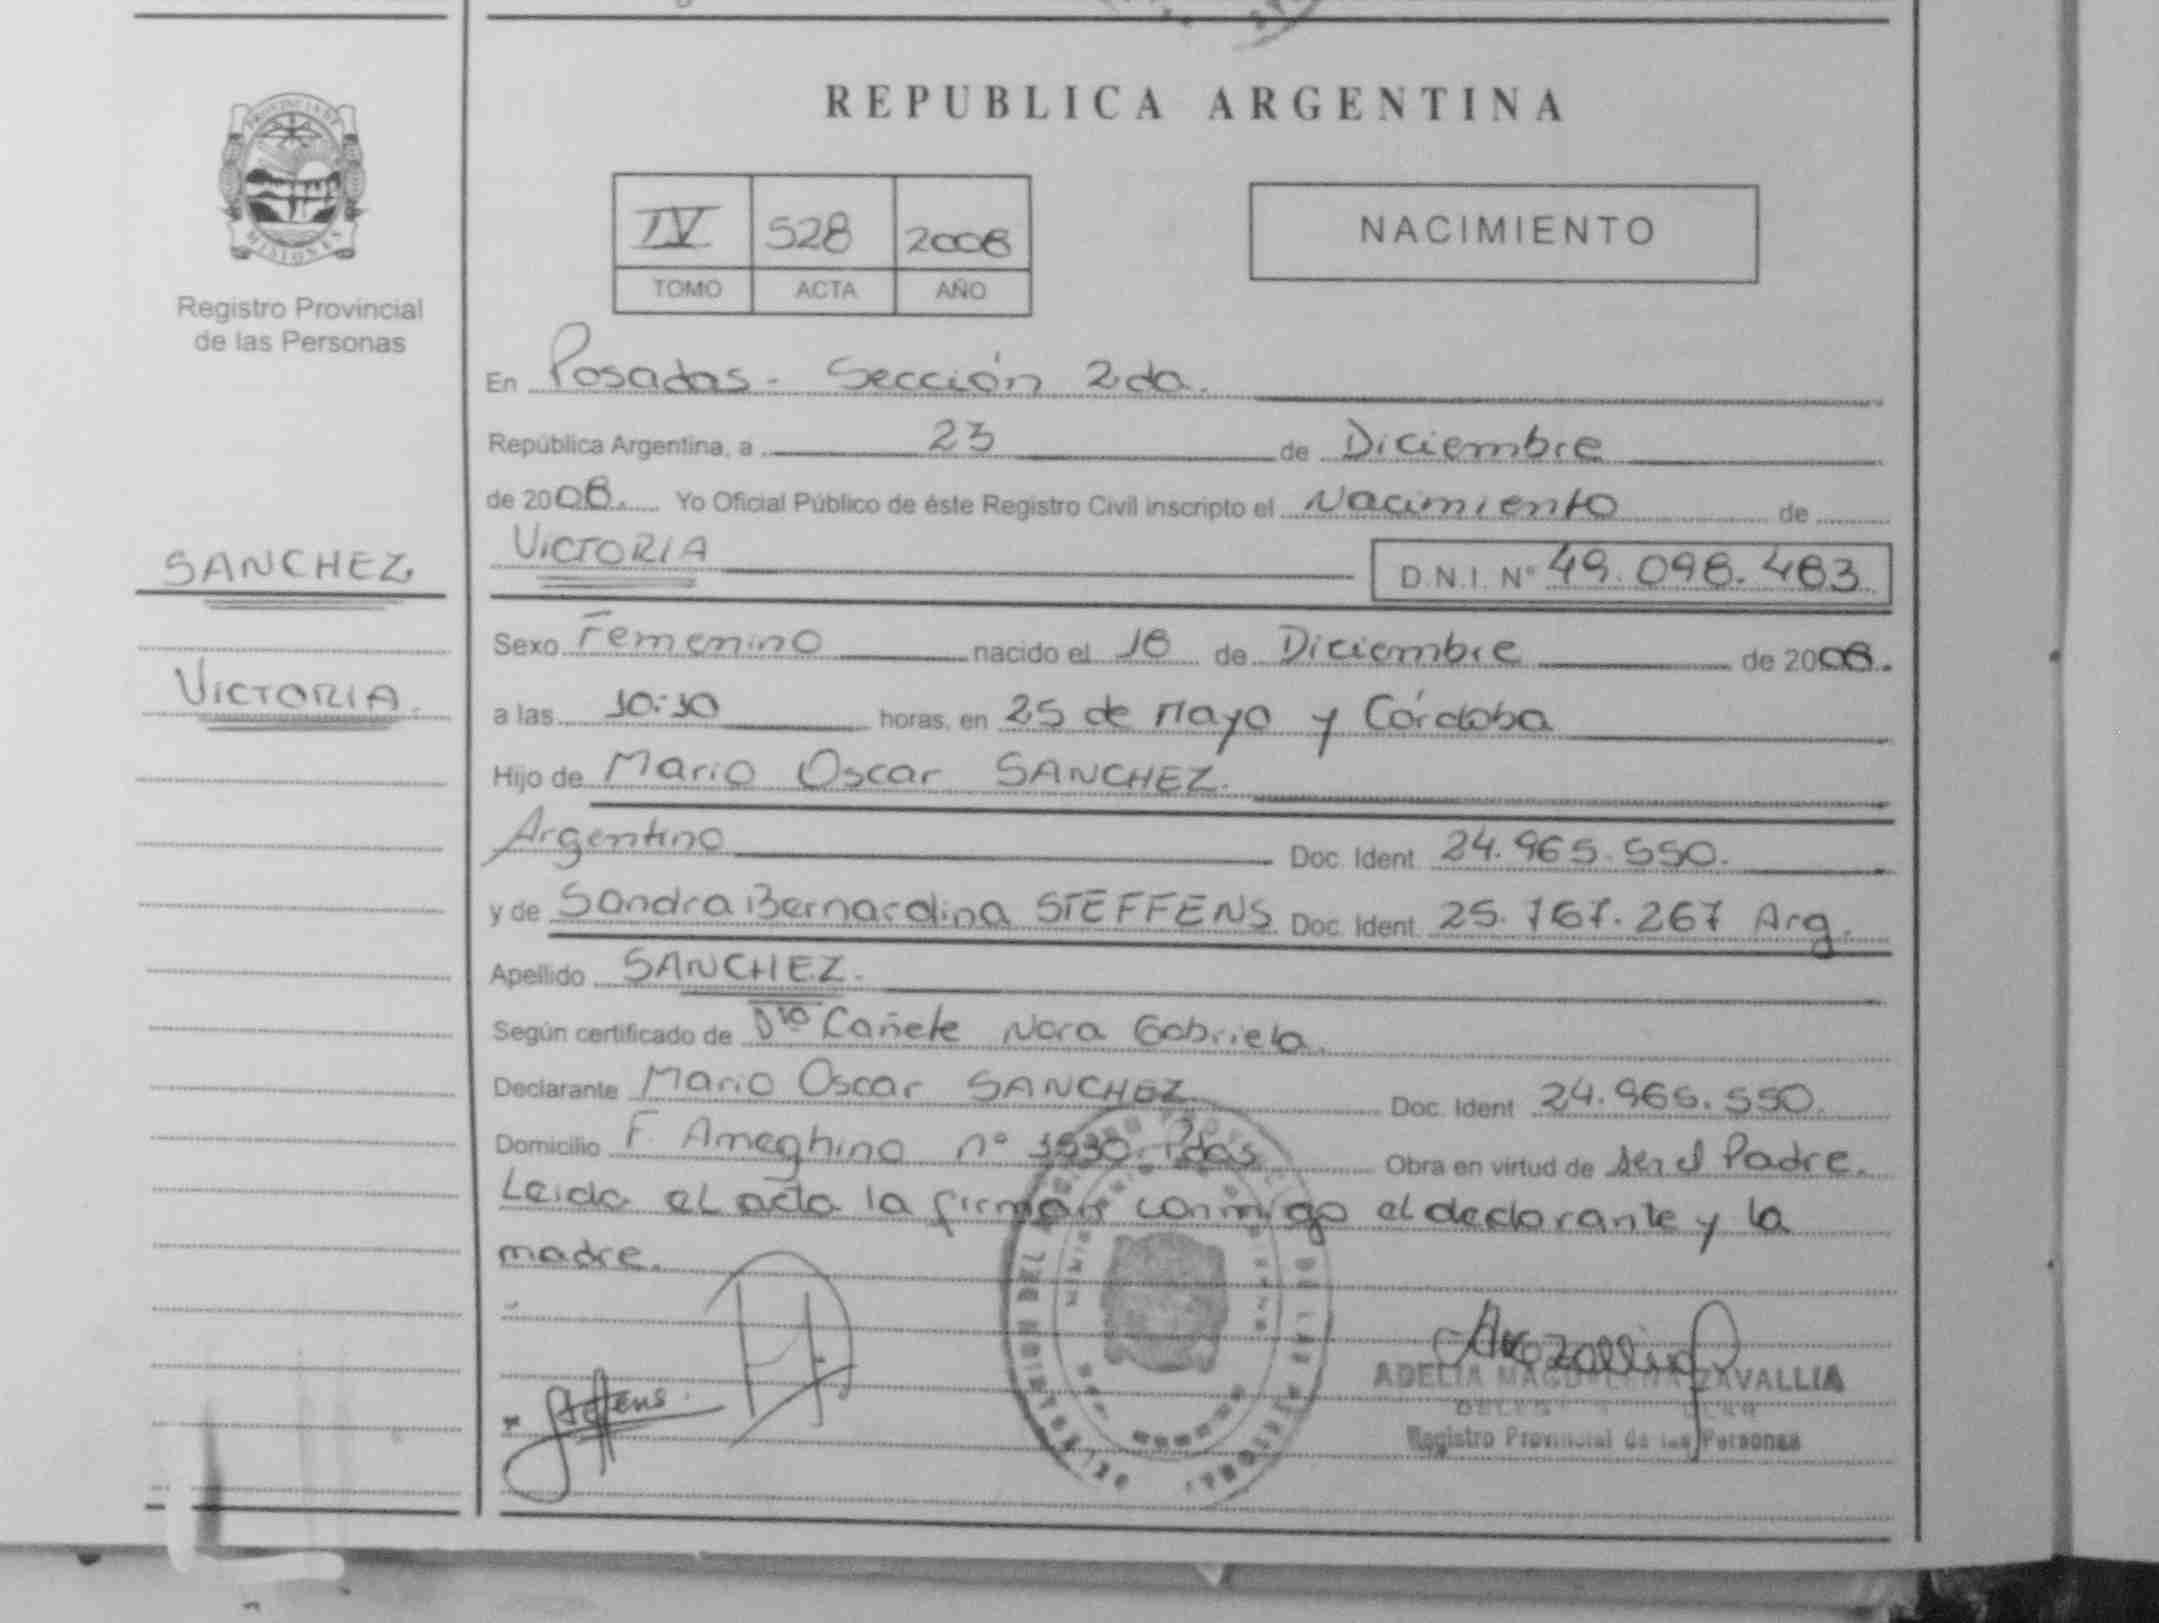 PROVINCIA DE
MISIONES
Registro Provincial
de las Personas
SANCHEZ
VICTORIA.
REPUBLICA ARGENTINA
IV 528 2008
TOMO ACTA AÑO
NACIMIENTO
En Posadas - Sección 2da.
República Argentina, a 23 de Diciembre
de 2008. Yo Oficial Público de éste Registro Civil inscripto el Nacimiento de
VICTORIA D.N.I. Nº 49.098.483.
Sexo Femenino nacido el 18 de Diciembre de 2008.
a las 10:10 horas, en 25 de Mayo y Córdoba
Hijo de Mario Oscar SANCHEZ.
Argentino Doc. Ident. 24.965.550.
y de Sandra Bernardina STEFFENS Doc. Ident. 25.767.267 Arg.
Apellido SANCHEZ.
Según certificado de Dra Cañete Nora Gabriela.
Declarante Mario Oscar SANCHEZ Doc. Ident 24.965.550.
Domicilio F. Ameghino nº 1530. Pdas Obra en virtud de ser el Padre.
Leida el acta la firman conmigo el declarante y la
madre.
Steffens.
ADELIA MAGDALENA ZAVALLIA
Registro Provincial de las Personas